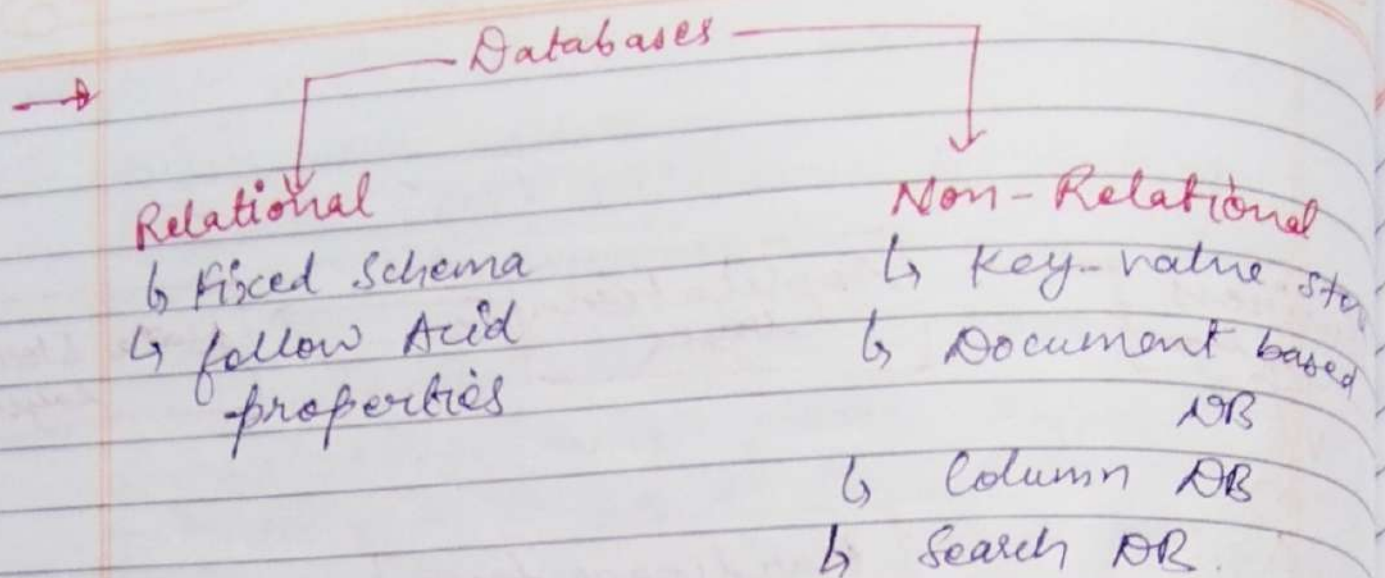 Databases
Relational
Fixed Schema
follow Acid
properties
Non-Relational
Key-value
Document based
DB
Column DB
Search DB.